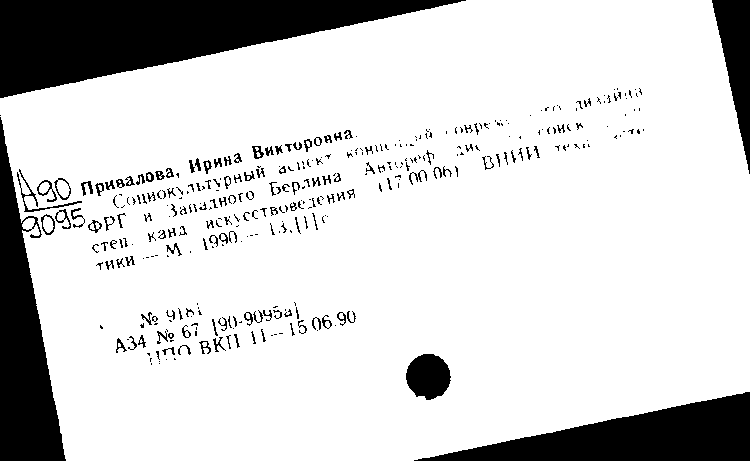 А90
9095
Привалова, Ирина Викторовна.
Социокультурный аспект концепций современного дизайна
ФРГ и Западного Берлина : Автореф. дис. на соиск.
степ. канд. искусствоведения (17.00.06) ВНИИ техн. эсте-
тики — М., 1990. — 13,[1] с
№ 9181
А34 № 67 [90-9095а]
НПО ВКП 11—15.06.90